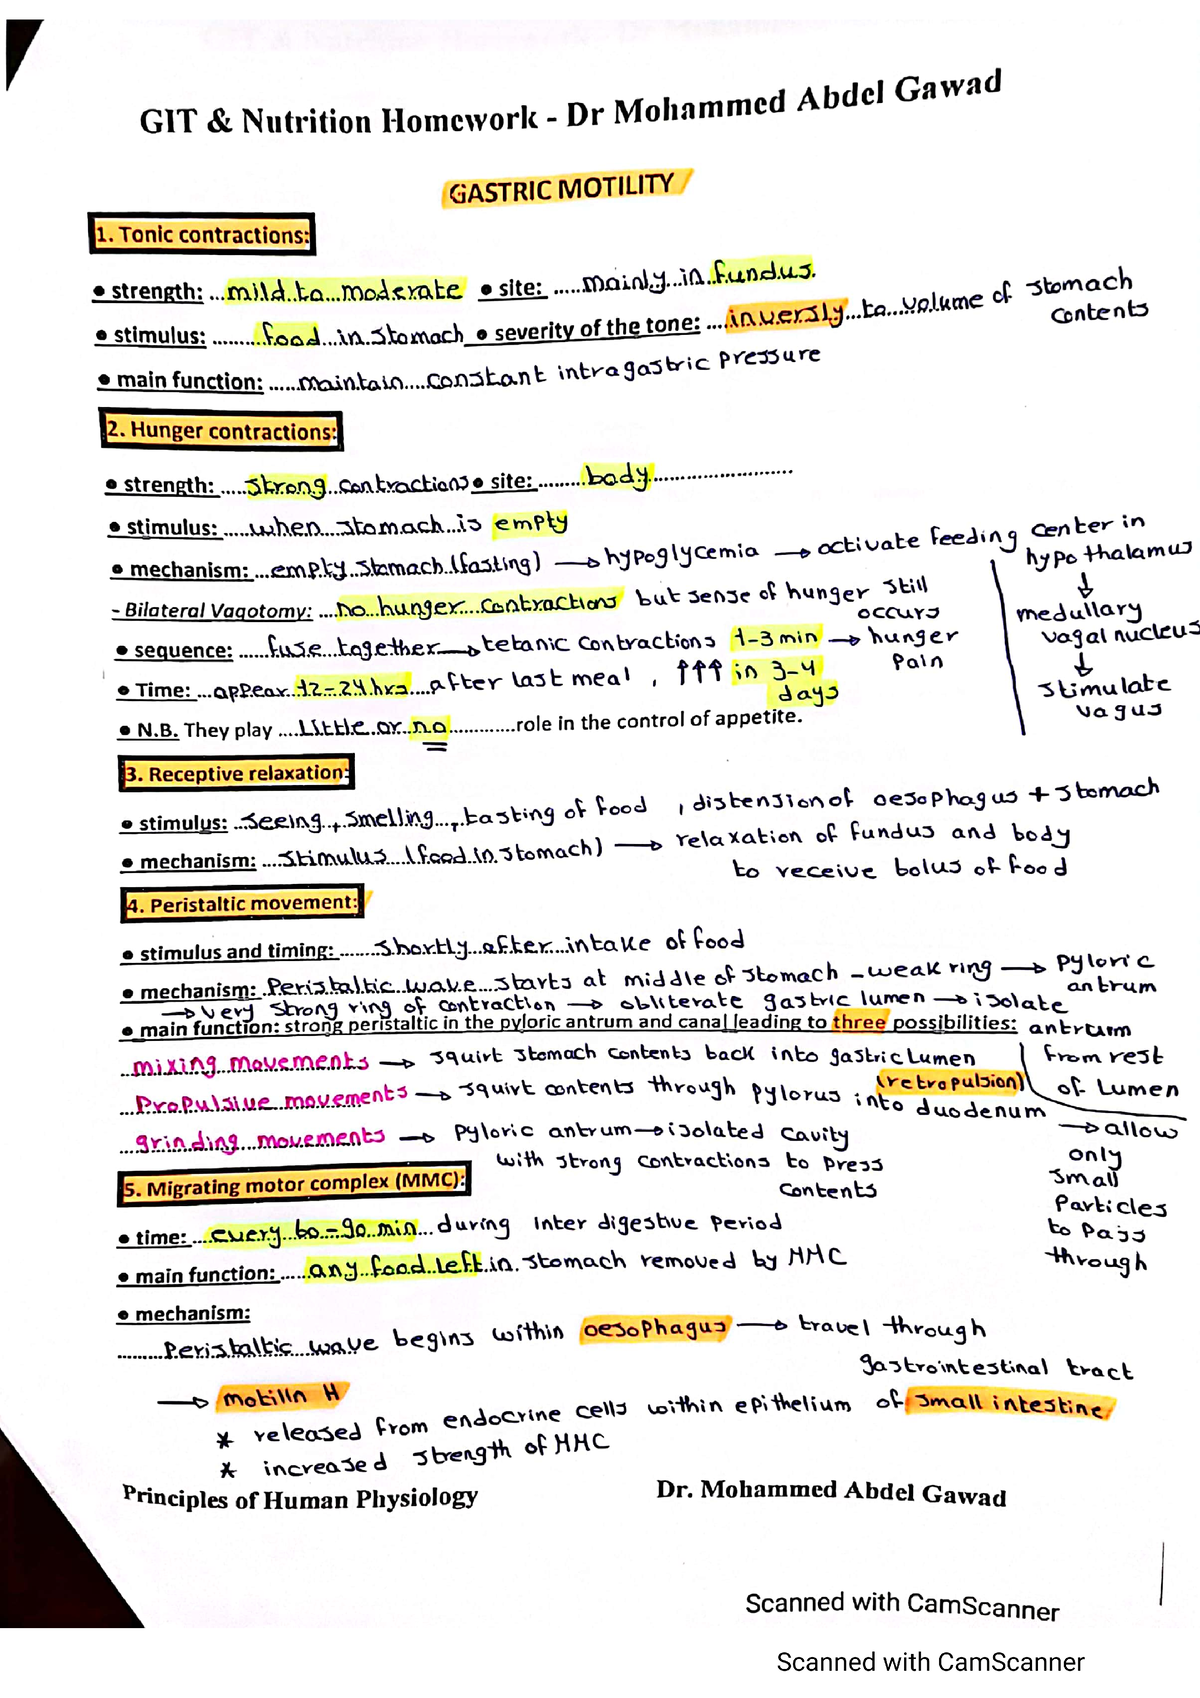 GIT & Nutrition Homework - Dr Mohammed Abdel Gawad
GASTRIC MOTILITY
1. Tonic contractions:
● strength: ...mild..to...moderate ● site: .....mainly...in.fundus.
● stimulus: ........food...in.stomach ● severity of the tone: ....inversly...to...volume of stomach
contents
● main function: .....maintain....constant intragastric pressure
2. Hunger contractions:
● strength: ....strong..contractions ● site: ........body.......................
● stimulus: .....when..stomach..is empty
● mechanism: ...empty.stomach.(fasting) → hypoglycemia → activate feeding center in
hypothalamus
↓
medullary
vagal nucleus
↓
stimulate
vagus
- Bilateral Vagotomy: ...no..hunger...contractions but sense of hunger still
occurs
● sequence: .....fuse..together → tetanic contractions 1-3 min → hunger
pain
● Time: ...appear.12-24 hrs....after last meal , ↑↑↑ in 3-4
days
● N.B. They play ....Little.or.no.............role in the control of appetite.
3. Receptive relaxation:
● stimulus: ...seeing.,.smelling...,.tasting of food , distension of oesophagus + stomach
● mechanism: ...stimulus...(food.in.stomach) → relaxation of fundus and body
to receive bolus of food
4. Peristaltic movement:
● stimulus and timing: .......shortly..after...intake of food
● mechanism: .Peristaltic.wave...starts at middle of stomach - weak ring → pyloric
antrum
→ very strong ring of contraction → obliterate gastric lumen → isolate
antrum
from rest
of Lumen
● main function: strong peristaltic in the pyloric antrum and canal leading to three possibilities:
...mixing.movements → squirt stomach contents back into gastric Lumen
(retropulsion)
...Propulsive movements → squirt contents through pylorus into duodenum
→ allow
only
small
Particles
to pass
through
...grinding..movements → pyloric antrum → isolated cavity
with strong contractions to press
contents
5. Migrating motor complex (MMC):
● time: ...every.60.-90.min...during inter digestive period
● main function: .....any..food..left.in.stomach removed by MMC
● mechanism:
........Peristaltic..wave begins within oesophagus → travel through
gastrointestinal tract
→ motilin H
* released from endocrine cells within epithelium of small intestine
* increased strength of MMC
Principles of Human Physiology Dr. Mohammed Abdel Gawad
Scanned with CamScanner
Scanned with CamScanner